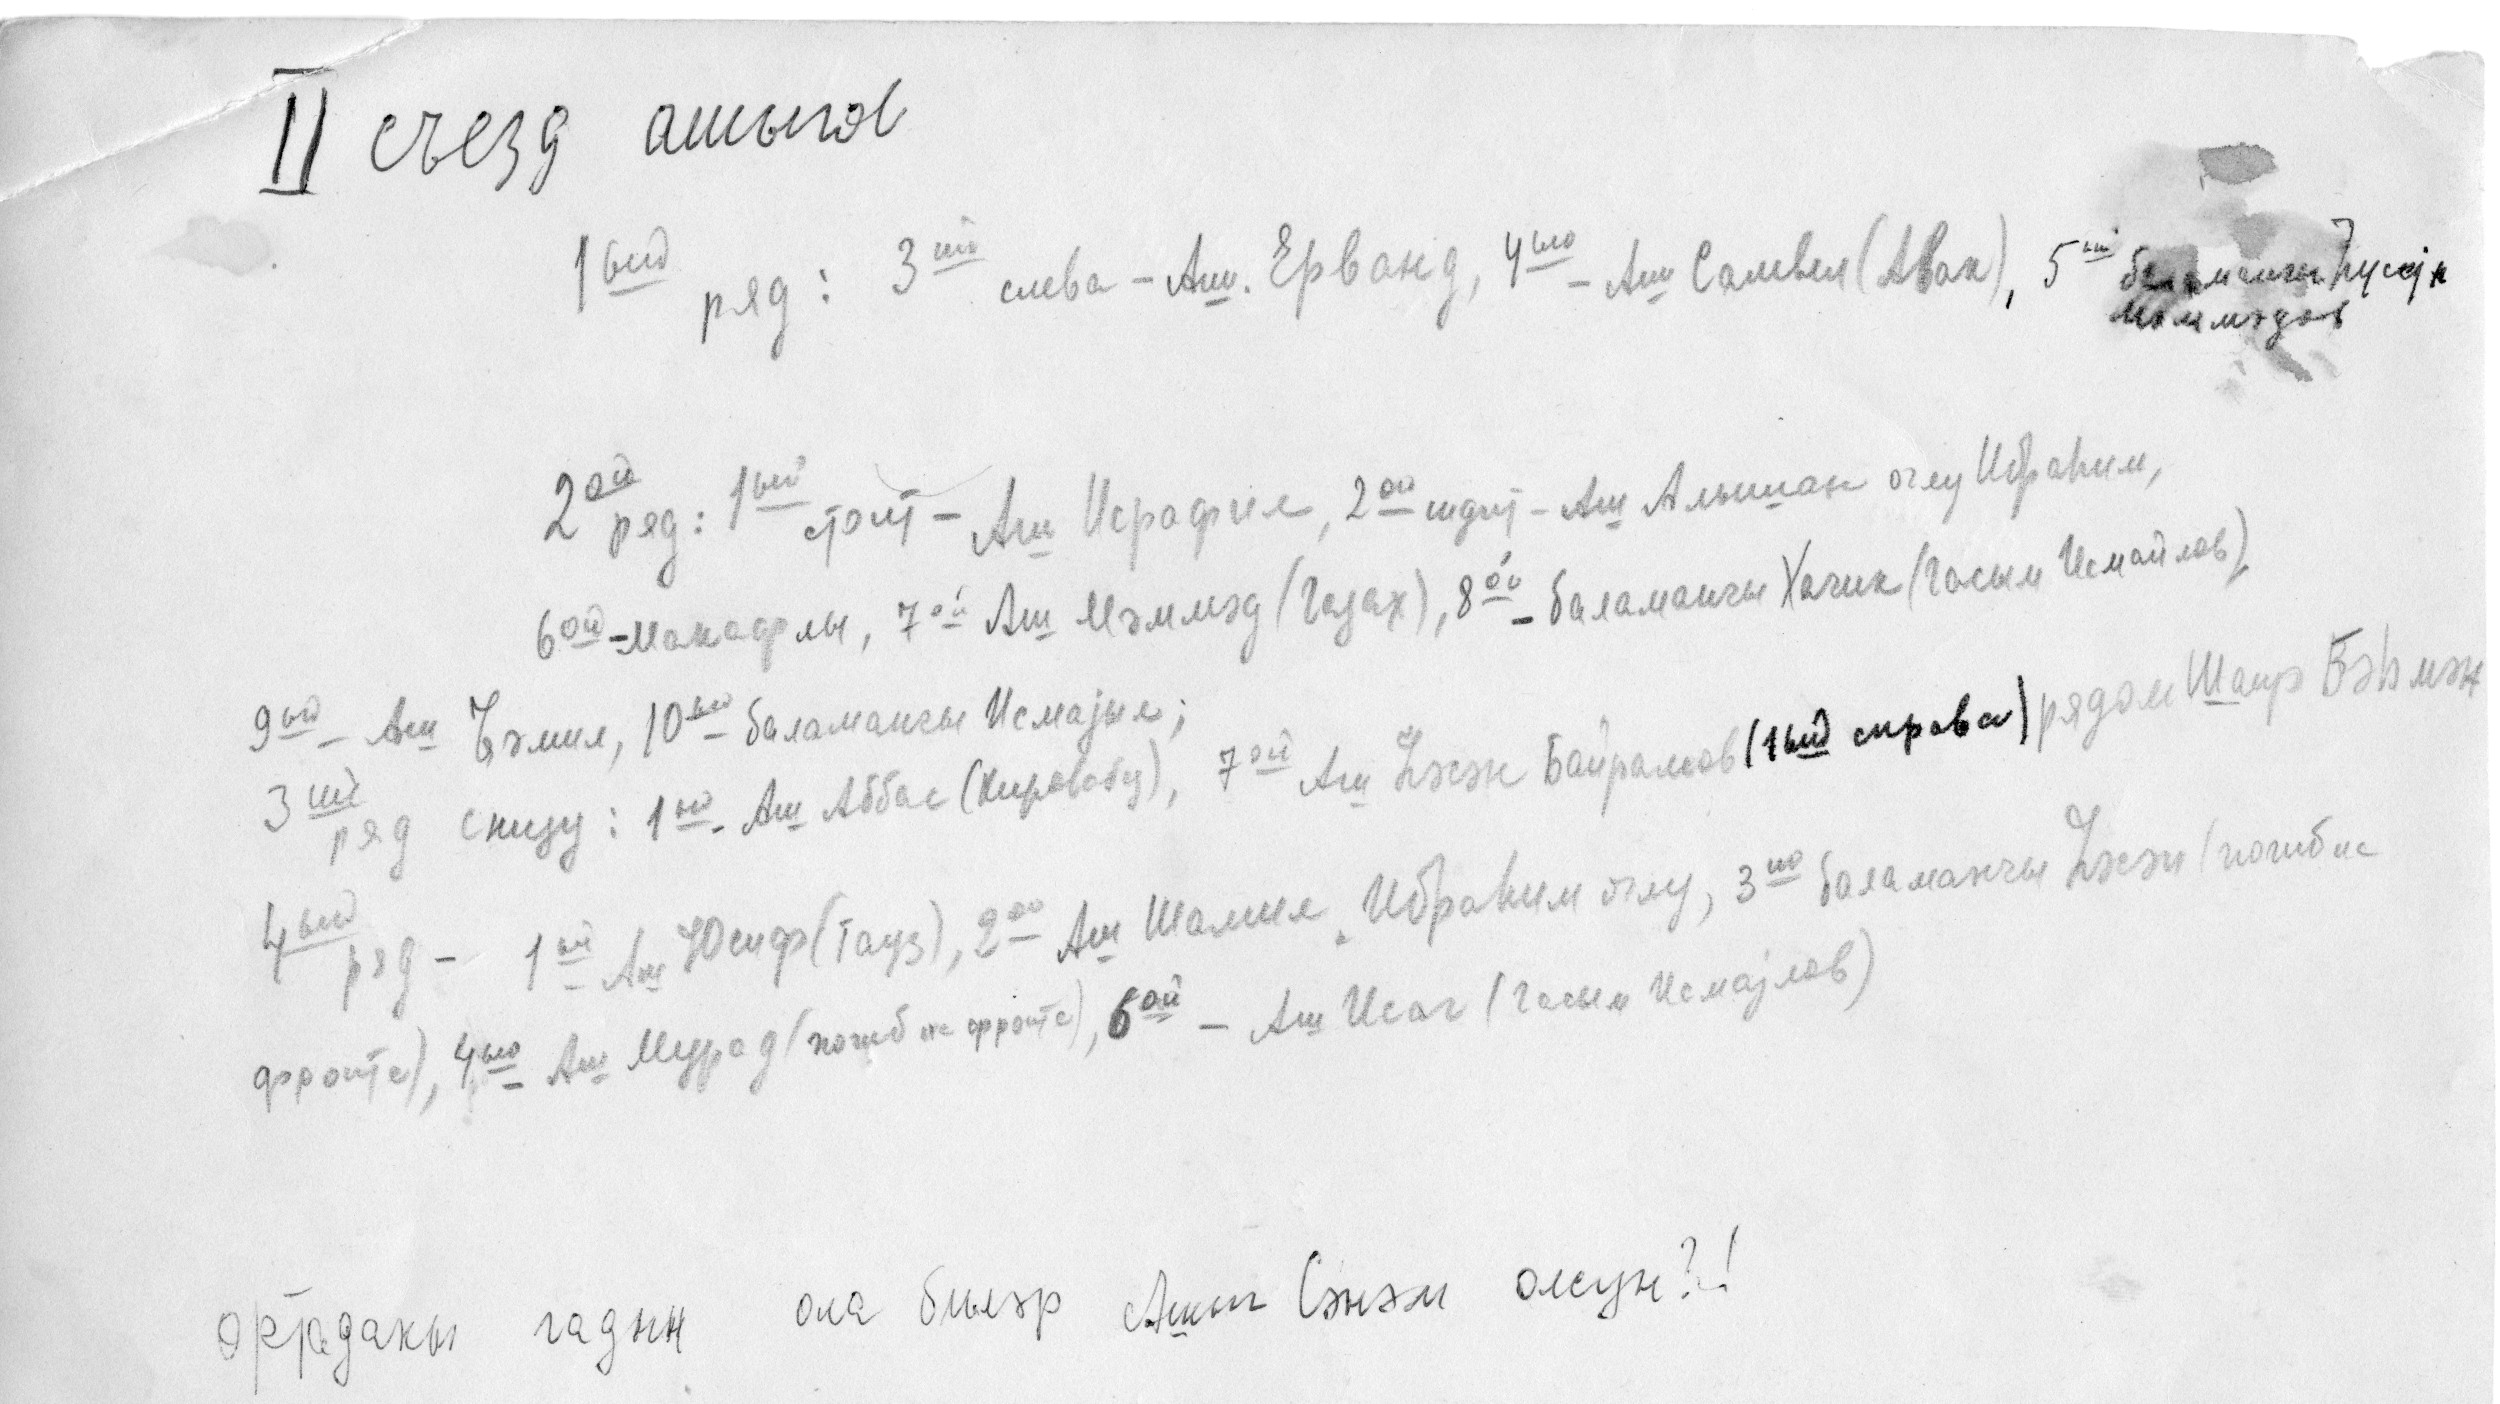 II съезд ашыгов
1ый ряд: 3ий слева – Аш. Ерванд, 4ый – Аш Самвел (Авак), 5ый баламанчы Һусејн
Мәммәдов
2ой ряд: 1ый стоит – Аш Исрафил, 2ой сидит – Аш Алышан оглу Ибраһим,
6ой – Манафлы, 7ой Аш Мәммәд (Газах), 8ой – баламанчы Хачик (Гасым Исмайлов),
9ый – Аш Ҹәмил, 10ый баламанчы Исмајыл;
3ий ряд снизу: 1ый – Аш Аббас (Кировабад), 7ой Аш Һәсән Байрамов (1ый справа) рядом Шаир Бәһмән
4ый ряд – 1ый Аш Юсиф (Тауз), 2ой Аш Шамил Ибраһим оглу, 3ий баламанчы Һәсән (погиб на
фронте), 4ый Аш Мурад (погиб на фронте), 6ой – Аш Исаг (Гасым Исмајлов)
Ортадакы гадын ола биләр Ашыг Сәнәм олсун?!